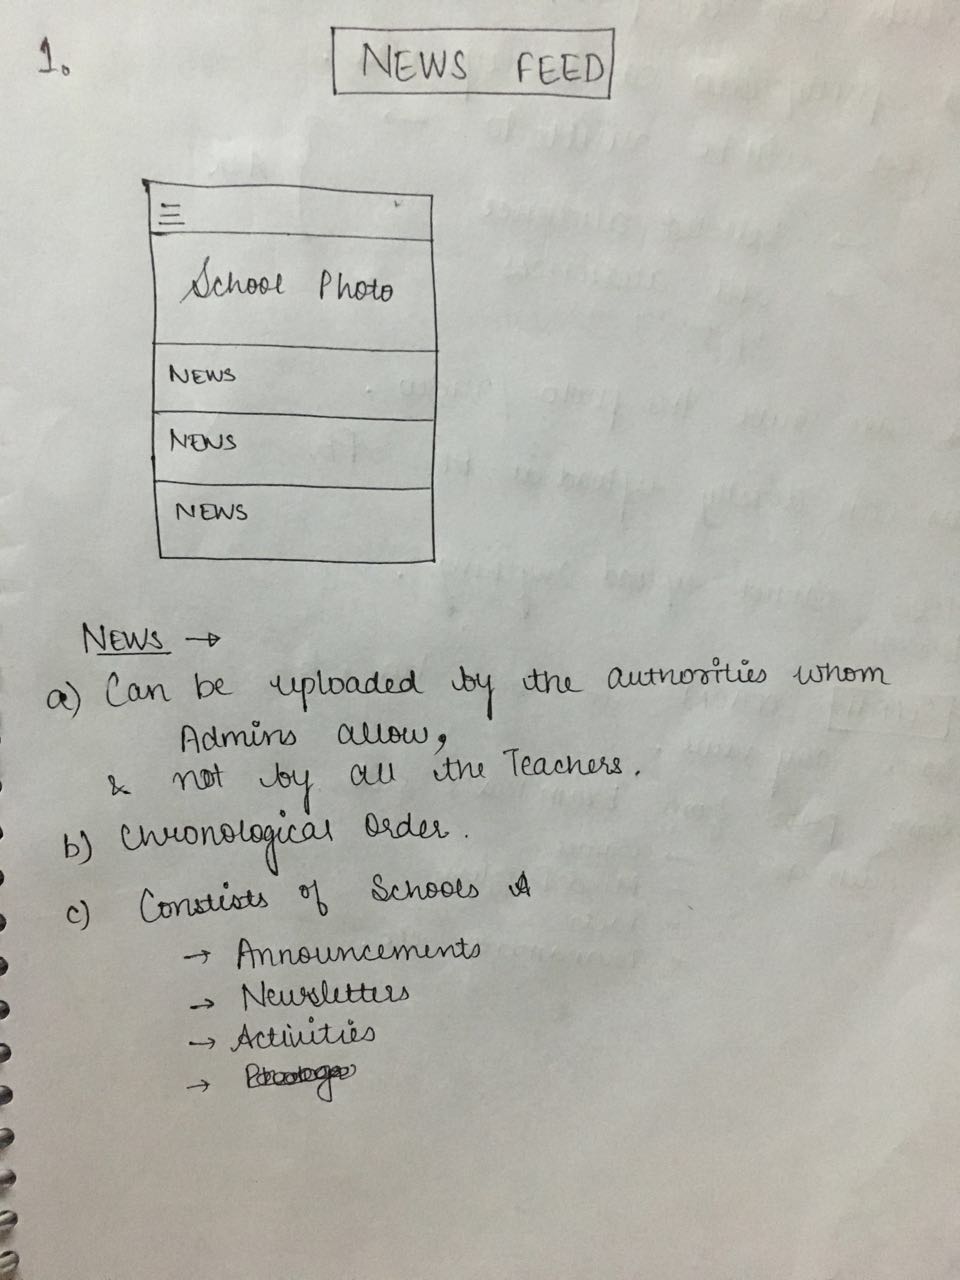 1.
NEWS FEED
School Photo
NEWS
NEWS
NEWS
NEWS →
a) Can be uploaded by the authorities whom
Admins allow,
& not by all the Teachers.
b) Chronological Order.
c) Consists of Schools
→ Announcements
→ Newsletters
→ Activities
→